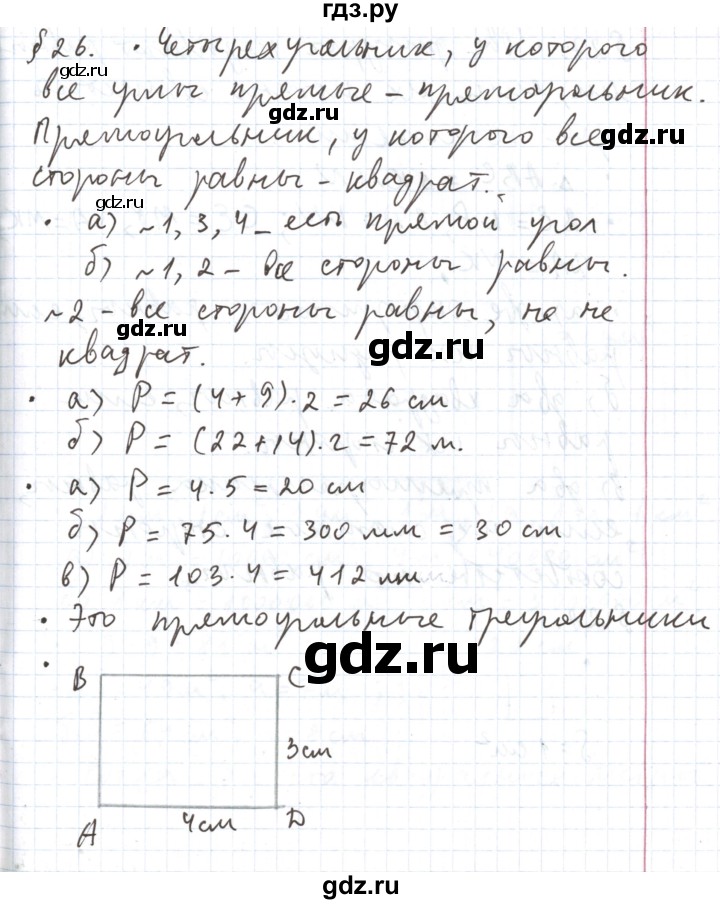 гдз.ру
§ 26. • Четырехугольник, у которого
gdz.ru
все углы прямые – прямоугольник.
gdz.ru
Прямоугольник, у которого все
gdz.ru
стороны равны – квадрат.
• а) ~1, 3, 4 – есть прямой угол
gdz.ru
б) ~1, 2 – все стороны равны.
~2 – все стороны равны, не не
gdz.ru
квадрат.
gdz.ru
• а) P = (4+9)·2 = 26 см
б) P = (22+14)·2 = 72 м.
• а) P = 4·5 = 20 см
gdz.ru
б) P = 75·4 = 300 мм = 30 см
в) P = 103·4 = 412 мм
• Это прямоугольные треугольники
gdz.ru
• B C
3 см
A 4 см D
gdz.ru